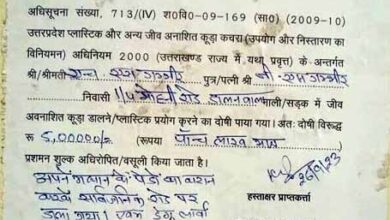 अधिसूचना संख्या, 713/(IV) श०वि०-09-169 (सा0) (2009-10)
उत्तरप्रदेश प्लास्टिक और अन्य जीव अनाशित कूड़ा कचरा (उपयोग और निस्तारण का
विनियमन) अधिनियम 2000 (उत्तराखण्ड राज्य में, यथा प्रवृत्त) के अन्तर्गत
श्री/श्रीमती पुत्र/पत्नी श्री
निवासी रोड डालनवाला गली/सड़क में जीव
अवनाशित कूड़ा डालने/प्लास्टिक प्रयोग करने का दोषी पाया गया। अतः दोषी विरूद्ध
रू 5,00000/- (रूपया पाँच लाख मात्र
प्रशमन शुल्क अधिरोपित/वसूली किया जाता है।
अपने के पेडो का
सार्वजनिक रोड पर
डाला गया।
26/9/23
हस्ताक्षर प्राप्तकर्ता